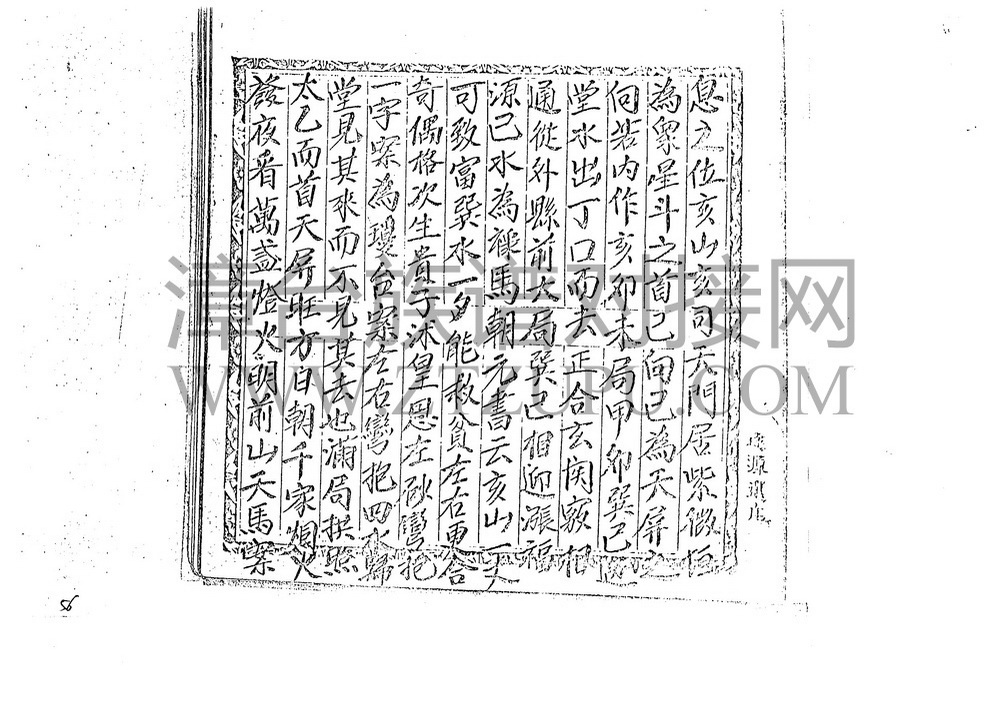 息之位亥山亥司天門居紫微垣
為衆星斗之首巳向巳為天屏之
向若内作亥卯未局甲卯巽巳
堂水出丁口而去正合玄関竅相
通從外縣前大局巽巳相迎漲福
源巳水為祿馬朝元書云亥山
可致富巽水一多能救貧左右更合
奇偶格次生貴子沐皇恩左砂彎抱
一字案為瓊台案左右彎抱四水歸
堂見其來而不見其去也滿局拱照
太乙而首天屏旺方日朝千家烟火
發夜看萬盞燈火明前山天馬案
漳台族谱对接网
WWW.ZTZUPU.COM